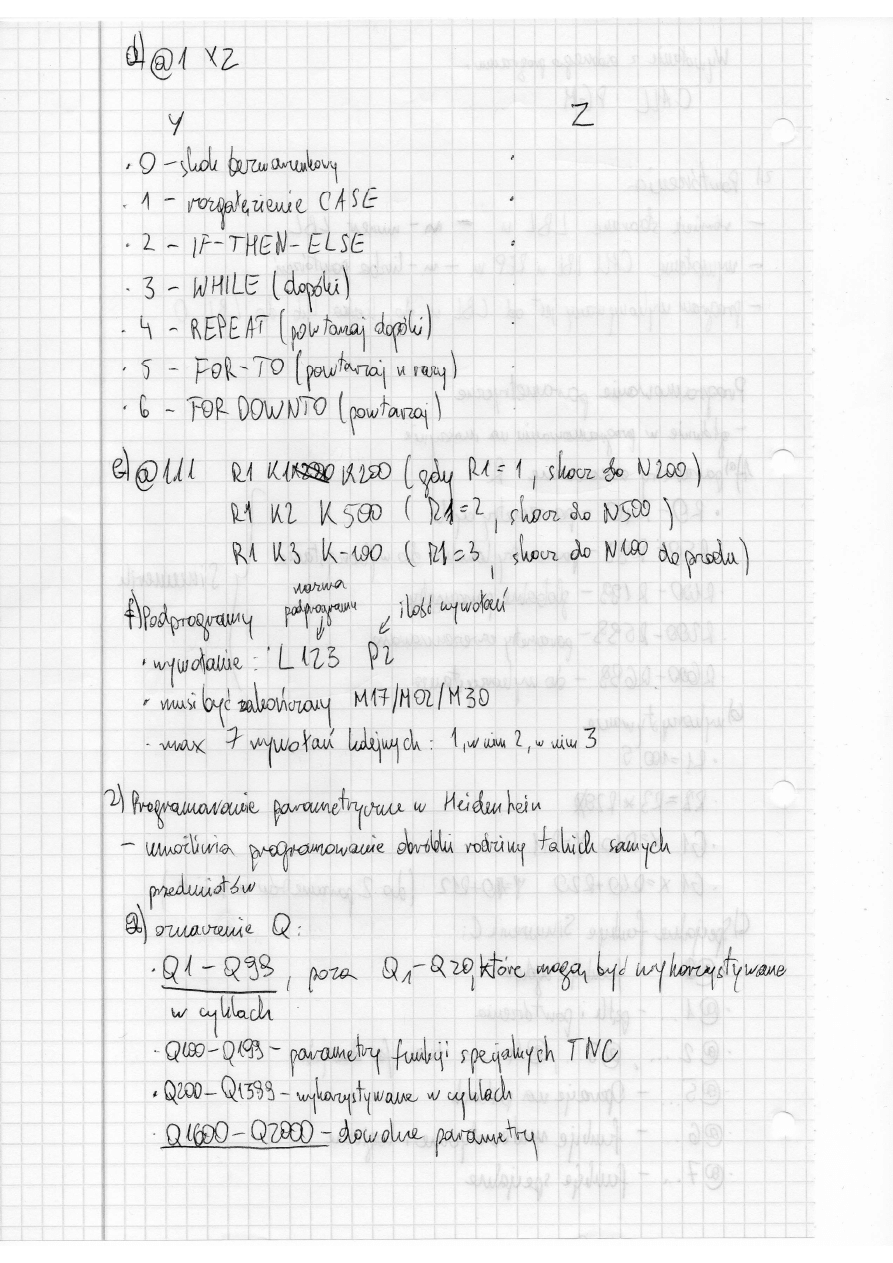 d) @1 YZ
Y Z
· 0 - skok bezwarunkowy ·
· 1 - rozgałęzienie CASE ·
· 2 - IF-THEN-ELSE ·
· 3 - WHILE (dopóki)
· 4 - REPEAT (powtarzaj dopóki)
· 5 - FOR-TO (powtarzaj n razy)
· 6 - FOR DOWNTO (powtarzaj)
e) @111 R1 K1 K200 (gdy R1=1, skocz do N200)
R1 K2 K500 (R1=2, skocz do N500)
R1 K3 K-100 (R1=3, skocz do N100 do przodu)
nazwa
f) Podprogramy podprogramu ilość wywołań
· wywołanie: L123 P2
· musi być zakończony M17/M02/M30
· max 7 wywołań kolejnych: 1, w nim 2, w nim 3
2) Programowanie parametryczne w Heidenhein
- umożliwia programowanie obróbki rodziny takich samych
przedmiotów
a) oznaczenie Q:
· Q1-Q99, poza Q1-Q20, które mogą być wykorzystywane
w cyklach
· Q100-Q199 - parametry funkcji specjalnych TNC
· Q200-Q1399 - wykorzystywane w cyklach
· Q1600-Q2000 - dowolne parametry